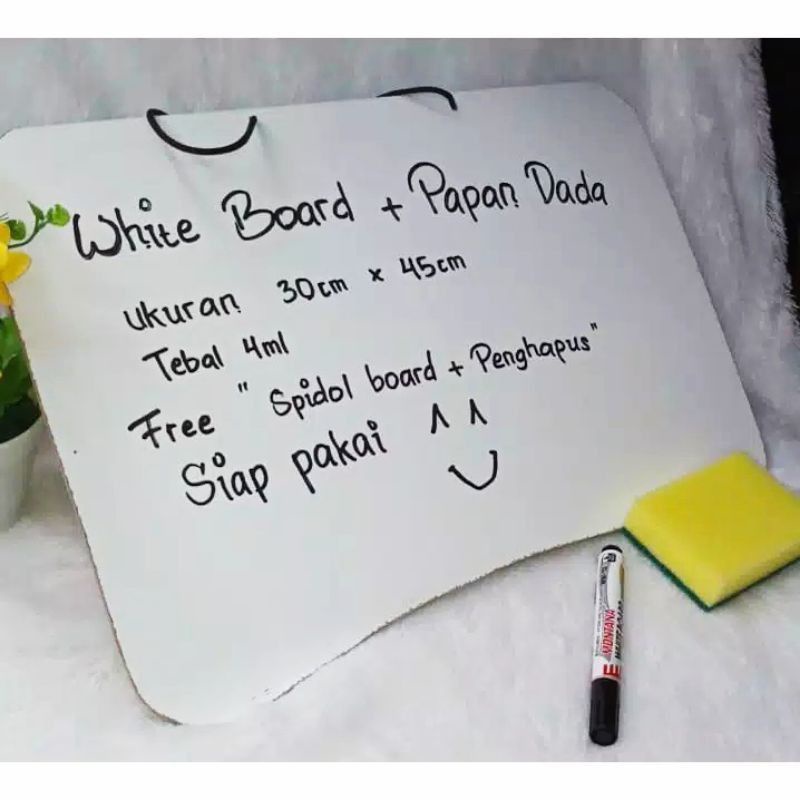 White Board + Papan Dada
ukuran 30cm x 45cm
Tebal 4ml
Free "Spidol board + Penghapus"
Siap pakai ^ ^
MONTANA